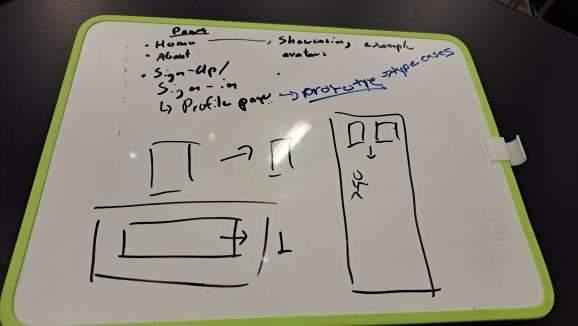 Pages
• Home ———, Showcasing example
• About avatars
• Sign-Up/
Sign-in
↳ Profile page → prototype